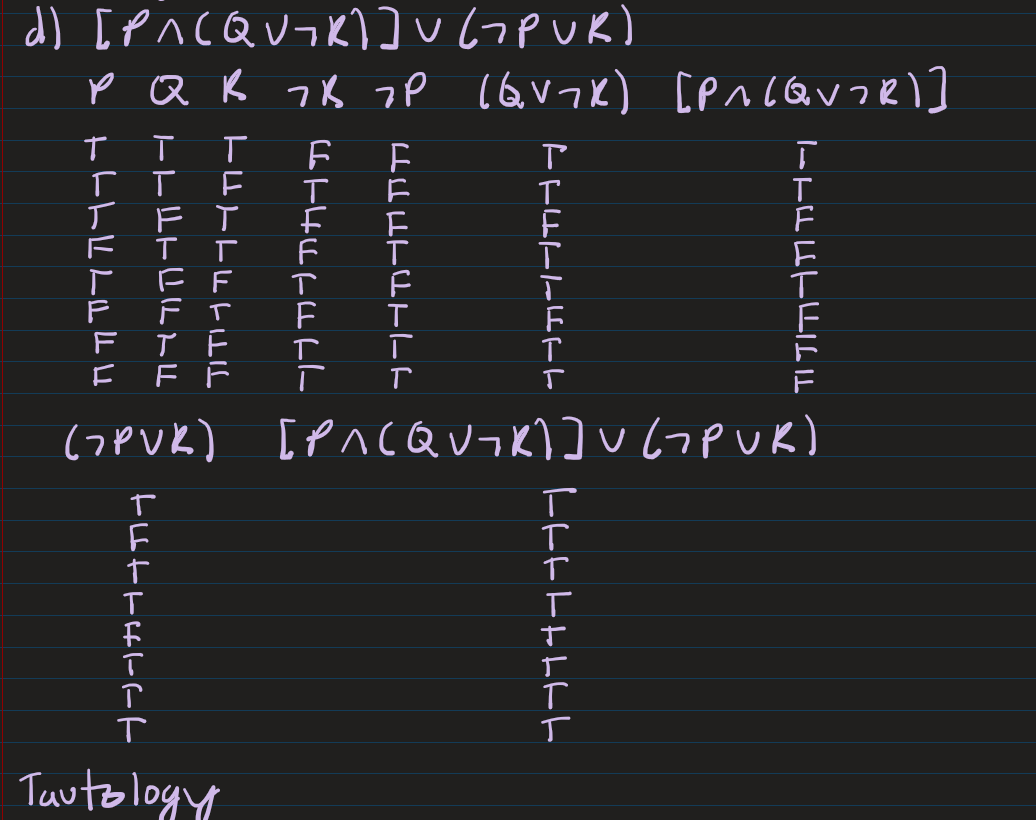 d) [P∧(Q∨¬R)]∨(¬P∨R)
P Q R ¬R ¬P (Q∨¬R) [P∧(Q∨¬R)]
T T T F F T T
T T F T F T T
T F T F F F F
F T T F T T F
T F F T F T T
F F T F T F F
F T F T T T F
F F F T T T F
(¬P∨R) [P∧(Q∨¬R)]∨(¬P∨R)
T T
F T
T T
T T
F T
T T
T T
T T
Tautology